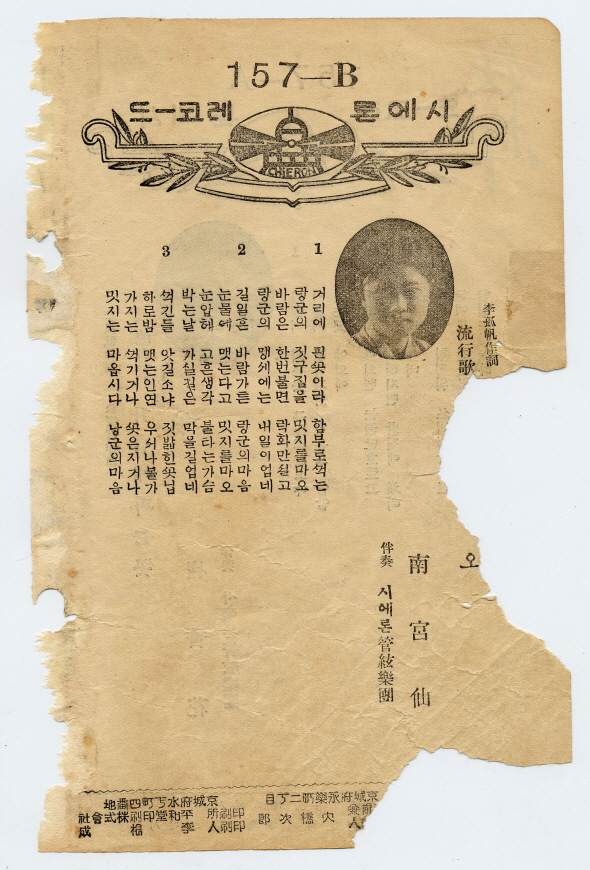 157—B
시에론 레코ー드
CHIERON
李孤帆作詞
流行歌
오
南宮仙
伴奏 시에론管絃樂團
1
거리에 핀ᄭᅩᆺ이라 함부로ᄭᅥᆨ는
랑군의 짓구짐을 밋지를마오
바람은 한번불면 락화만쉴고
랑군의 맹세에는 내일이업네
2
길일흔 바람가튼 랑군의마음
눈물에 맷는다고 밋지를마오
눈압헤 고흔생각 불타는가슴
박는날 가실 은 막을길업네
3
ᄭᅥᆨ긴들 앗길소냐 짓밟힌ᄭᅩᆺ닙
하로밤 맷는인연 우서나볼가
가지는 ᄭᅥᆨ기거나 ᄭᅩᆺ은지거나
밋지는 마옵시다 낭군의마음
京城府永樂町二丁目
人 大橋次郎
印刷人 李
印刷所 平和堂印刷株式會社
京城府水 町四番地